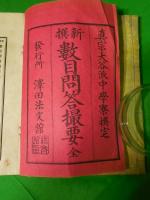 真宗大谷派中學寮撰定
新撰
數目問答撮要 全
發行所 澤田法文館